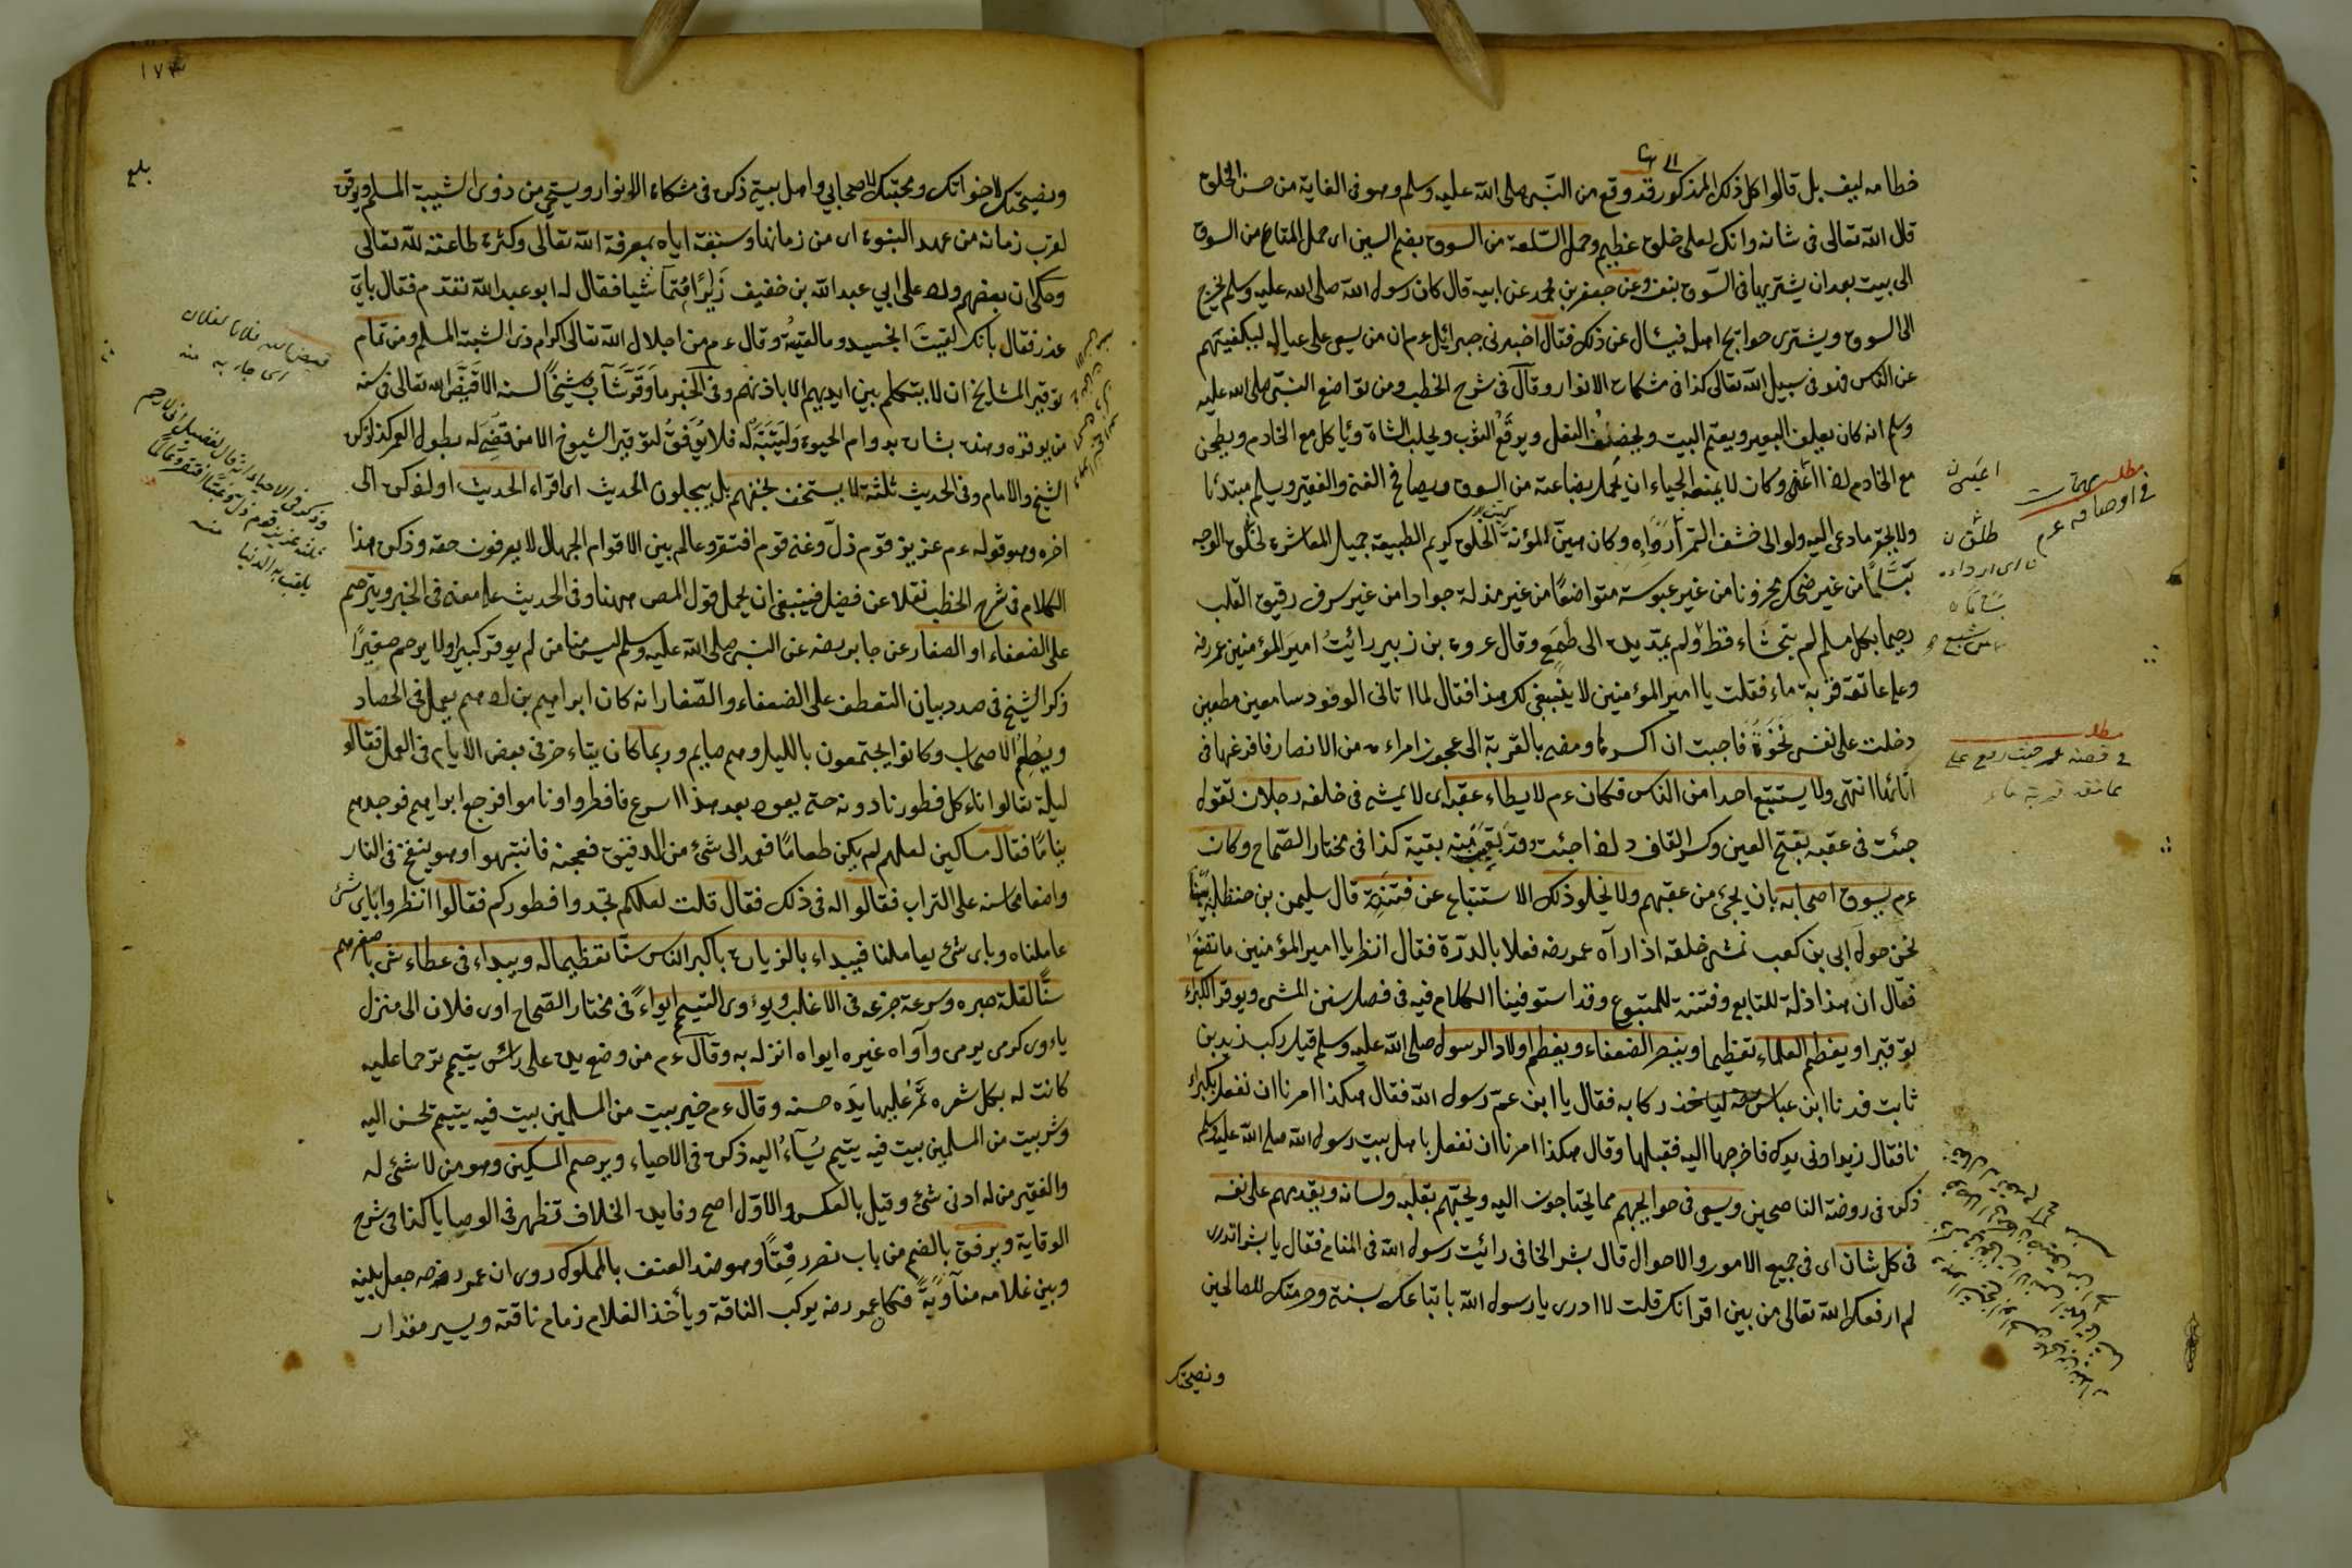 خطامه ليف بل قالوا كل ذلك المذكور قد وقع من النبى صلى الله عليه وسلم وهو فى الغاية من حسن الخلق
قال الله تعالى فى شانه وانك لعلى خلق عظيم وحمل السلعة من السوق بضم السين اى حمل المتاع من السوق
الى بيت بعد ان يشتريها فى السوق بنفسه وعن جعفر بن محمد عن ابيه قال كان رسول الله صلى الله عليه وسلم يخرج
الى السوق ويشترى حوايج اهله فيسئال عن ذلك فقال اخبرنى جبرائيل عم ان من يسعى على عياله ليكفيهم
عن الناس فهو فى سبيل الله تعالى كذا فى مشكاة الانوار وقال فى شرح الخطب ومن تواضع النبى صلى الله عليه
وسلم انه كان يعلف البعير ويقم البيت ويخصف النعل ويرقع الثوب ويحلب الشاة ويأكل مع الخادم ويطحن
مع الخادم اذا اعيى وكان لا يمنعه الحياء ان يحمل بضاعته من السوق ويصافح الغنى والفقير ويسلم مبتدئا
ولا يحقر ما دعى اليه ولو الى خشف التمر أرداءه وكان هين المؤنة الخلق كريم الطبيعة جميل المعاشرة طلق الوجه
بسّاما من غير ضحك محزونا من غير عبوسة متواضعا من غير مذلة جوادا من غير سرف رقيق القلب
رحيما بكل مسلم لم يتجشاء قط ولم يمد يده الى طمع وقال عروة بن زبير رائيت امير المؤمنين عمر رضه
وعلى عاتقه قربة ماء فقلت يا امير المؤمنين لا ينبغى لك هذا فقال لما اتانى الوفود سامعين مطيعين
دخلت على نفسى نخوة فاحببت ان اكسرها ومضى بالقربة الى عجوز امراءة من الانصار فافرغها فى
انائها انتهى ولا يستتبع احدا من الناس فكان عم لا يطاء عقبه اى لا يمشى فى خلفه رجلان تقول
جئت فى عقبه بفتح العين وكسر القاف اذا جئت وقد بقيت منه بقية كذا فى مختار الصحاح وكان
عم يسوق اصحابه بان يجئ من عقبهم ولا يخلو ذلك الاستتباع عن فتنة قال سليمن بن حنظلة بينا
نحن حول ابى بن كعب نمشى خلفه اذ اراه عمر رضه فعلاه بالدرة فقال انظر يا امير المؤمنين ما تصنع
فقال ان هذا ذلة للتابع وفتنة للمتبوع وقد استوفينا الكلام فيه فى فصل سنن المشى ويوقر الكبراء
توقيرا ويعظم العلماء تعظيما وينصر الضعفاء ويعظم اولاد الرسول صلى الله عليه وسلم قيل ركب زيد بن
ثابت فدنا ابن عباس رضه لياخذ ركابه فقال يا ابن عم رسول الله فقال هكذا امرنا ان نفعل بكبراء
نا فقال زيد اونى يدك فاخرجها اليه فقبلها وقال هكذا امرنا ان نفعل باهل بيت رسول الله صلى الله عليه وسلم
ذكره فى روضة الناصحين ويسعى فى حوايجهم مما يحتاجون اليه ويحبهم بقلبه ولسانه ويقدمهم على نفسه
فى كل شان اى فى جميع الامور والاحوال قال بشر الحافى رائيت رسول الله فى المنام فقال يا بشر اتدرى
لم ارفعك الله تعالى من بين اقرانك قلت لا ادرى يا رسول الله قال باتباعك سنتى وحرمتك للصالحين
ونصيحتك
مطلب
فى اوصافه عم
مطلب
فى قصة عمر حيث رفع على
عاتقه قربة ماء
١٧٣
بلغ
ونصيحتك لاخوانك ومحبتك لاصحابى واهل بيتى ذكره فى مشكاة الانوار ويستحى من ذوى الشيبة المسلم ويوقره
لقرب زمانه من عهد النبوة اى من زمانها وسبقه اياه بمعرفة الله تعالى وكثرة طاعته لله تعالى
وحكى ان بعضهم ورد على ابى عبد الله بن خفيف زايرا فتماشيا فقال له ابو عبد الله تقدم فقال باى
عذر فقال بانك لقيت الجنيد وما لقيته وقال عم من اجلال الله تعالى اكرام ذى الشيبة المسلم ومن تمام
توقير المشايخ ان لا يتكلم بين ايديهم الا باذنهم وفى الخبر ما وقر شاب شيخا لسنه الا قيض الله تعالى فى سنه
من يوقره وهذه بشارة بدوام الحيوة وليتنبه له فلا يوفق لتوقير الشيوخ الا من قضى له بطول العمر كذا ذكره
الشيخ والامام وفى الحديث ثلثة لا يستخف بحقهم بل يبجلون الحديث اى اقراء الحديث او لنذكره الى
اخره وهو قوله عم عزيز قوم ذل وغنى قوم افتقر وعالم بين الاقوام الجهال لا يعرفون حقه وذكر هذا
الكلام فى شرح الخطب نقلا عن فضيل فينبغى ان يحمل قول المص ههنا وفى الحديث على معنى فى الخبر ويترحم
على الضعفاء او الصغار عن جابر رضه عن النبى صلى الله عليه وسلم ليس منا من لم يوقر كبيرا ولا يرحم صغيرا
ذكر الشيخ فى صدد بيان التعطف على الضعفاء والصغار انه كان ابراهيم بن ادهم يعمل فى الحصاد
ويطعم الاصحاب وكانوا يجتمعون بالليل وهم صايم وربما كان يتاءخر فى بعض الايام فى العمل فقالوا
ليلة تعالوا ناءكل فطورنا دونه حتى يعود بعد هذا اسرع فافطروا وناموا فرجع ابراهيم فوجدهم
نياما فقال مساكين لعلهم لم يكن طعاما فعمد الى شئ من الدقيق فعجنه فانتبهوا وهو ينفخ فى النار
واضعا محاسنه على التراب فقالوا له فى ذلك فقال قلت لعلكم لم تجدوا فطوركم فقالوا انظروا باى شئ
عاملناه وباى شئ يعاملنا فيبداء بالزيارة باكبر الناس سنا تعظيما له ويبداء فى عطاء شى باصغرهم
سنا لقلة صبره وسرعة جزعه فى الاغلب ويؤوى اليتيم ايواء فى مختار الصحاح اوى فلان الى منزل
ياءوى كرمى يرمى وآواه غيره ايواه انزله به وقال عم من وضع يده على رائس يتيم ترحما عليه
كانت له بكل شعره تمر عليها يده حسنه وقال عم خير بيت من المسلمين بيت فيه يتيم يحسن اليه
وشر بيت من المسلمين بيت فيه يتيم يساء اليه ذكره فى الاحياء ويرحم المسكين وهو من لا شئ له
والفقير من له ادنى شئ وقيل بالعكس والاول اصح وفايدة الخلاف تظهر فى الوصايا كذا فى شرح
الوقاية ويرفق بالضم من باب نصر رفقا وهو ضد العنف بالمملوك روى ان عمر رضه جعل بينه
وبين غلامه مناوبة فكان عمر رضه يركب الناقة ويأخذ الغلام زمام ناقته ويسير مقدار